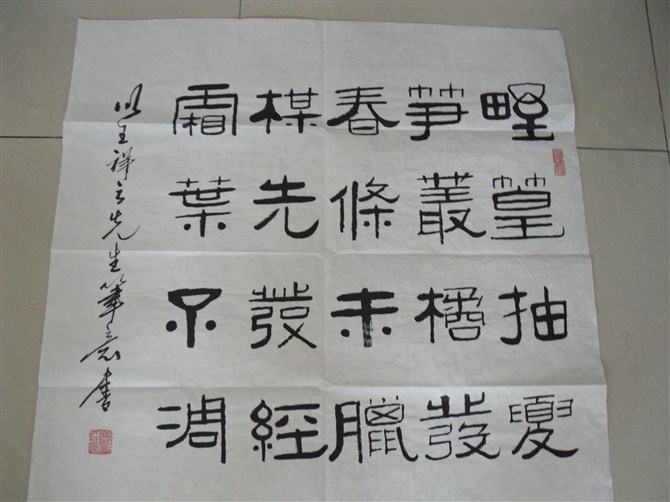 野篁抽夏
笋叢橘發
春條未臘
楳先發經
霜葉不凋
以王祥之先生筆意書